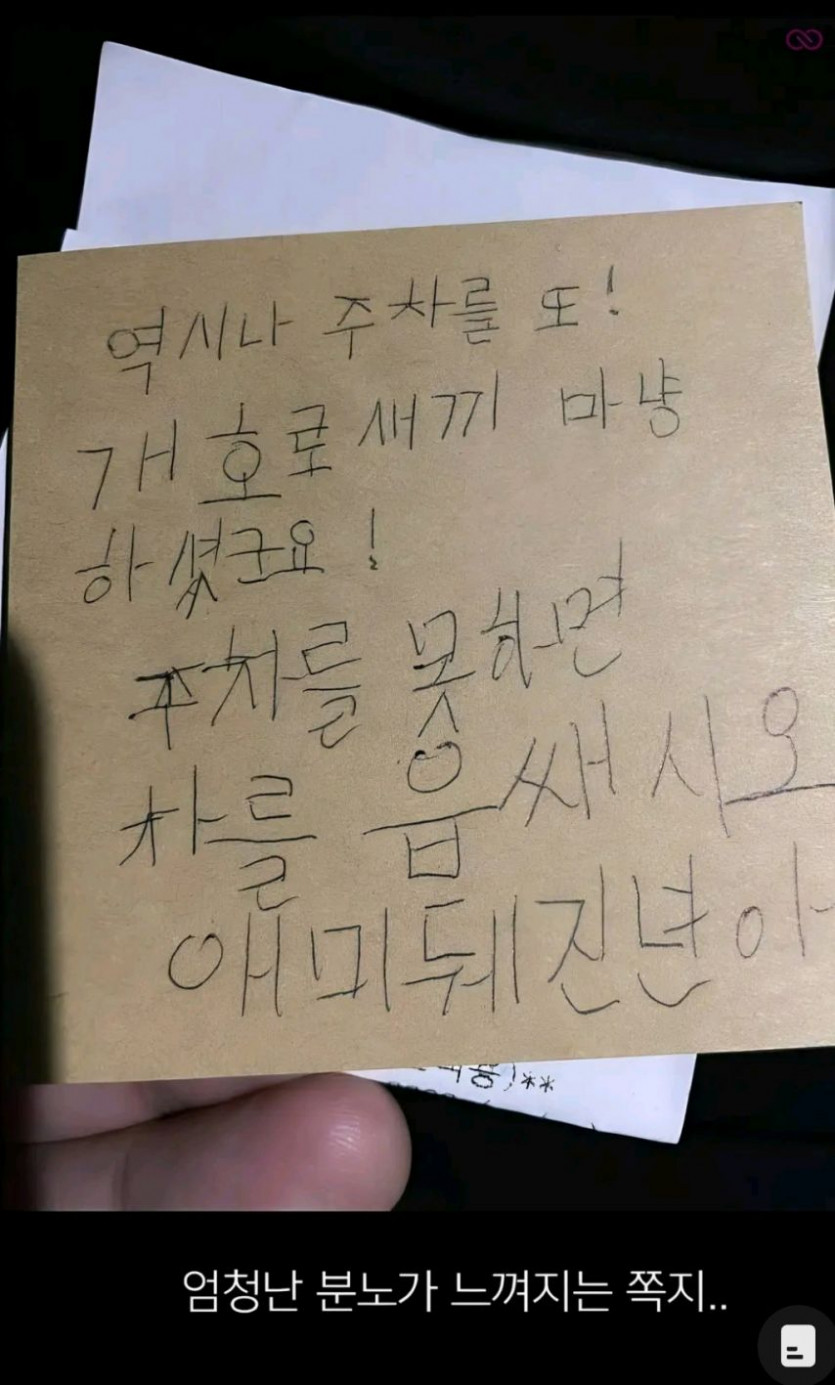 역시나 주차를 또!
개호로새끼 마냥
하셧군요!
주차를 못하면
차를 읍쌔시오
애미뒈진년아
엄청난 분노가 느껴지는 쪽지..